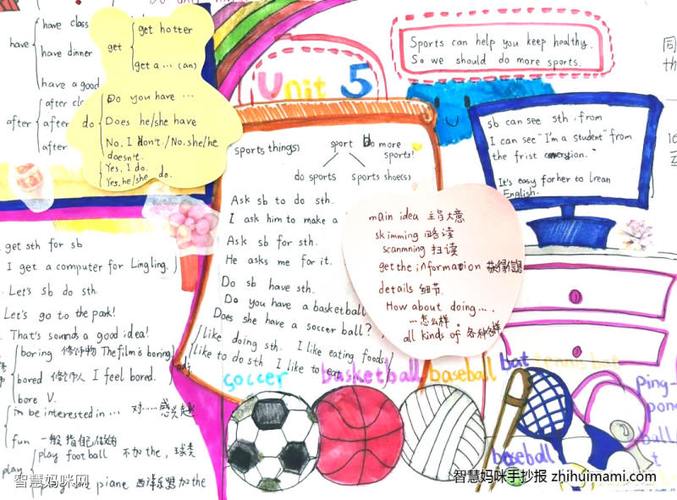 have class
have
have dinner
have a good
after cl
after
after
get hotter
get
get a ... (an)
Do you have ...
do
Does he/she have
No. I don't /No. she/he
doesn't.
Yes, I do.
Yes, he/she do.
get sth for sb
I get a computer for Lingling.
Let's sb do sth.
Let's go to the park!
That's sounds a good idea!
boring 修饰物 The film is boring
bored 修饰人 I feel bored.
bore V.
adj
in be interested in ... 对...感兴趣
fun
play football 不加the, 球类
play
piane 西洋乐器加the
智慧妈咪网
Unit 5
sports thing(s)
sport
Do more
sports!
do sports
sports shoe(s)
Ask sb to do sth.
I ask him to make a
Ask for sth.
He asks me for it.
Do sb have sth.
Do you have a basketball
Does she have a soccer ball?
like doing sth. I like eating foods
like to do sth I like to eat
main idea 主旨大意
skimming 略读
scanmning 扫读
get the information
details 细节
How about doing....
...怎么样.
all kinds of 各种各样
Sports can help you keep healthy.
So we should do more sports.
sb can see sth. from
I can see "I'm a student" from
the frist
It's easy for her to lrean
English.
同
th
soccer
basketball
baseball
bat
baseball
ping-
pong
智慧妈咪手抄报 zhihuimami.com